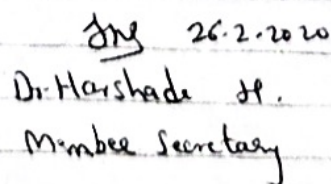 26.2.2020
Dr. Harshade H.
Member Secretary